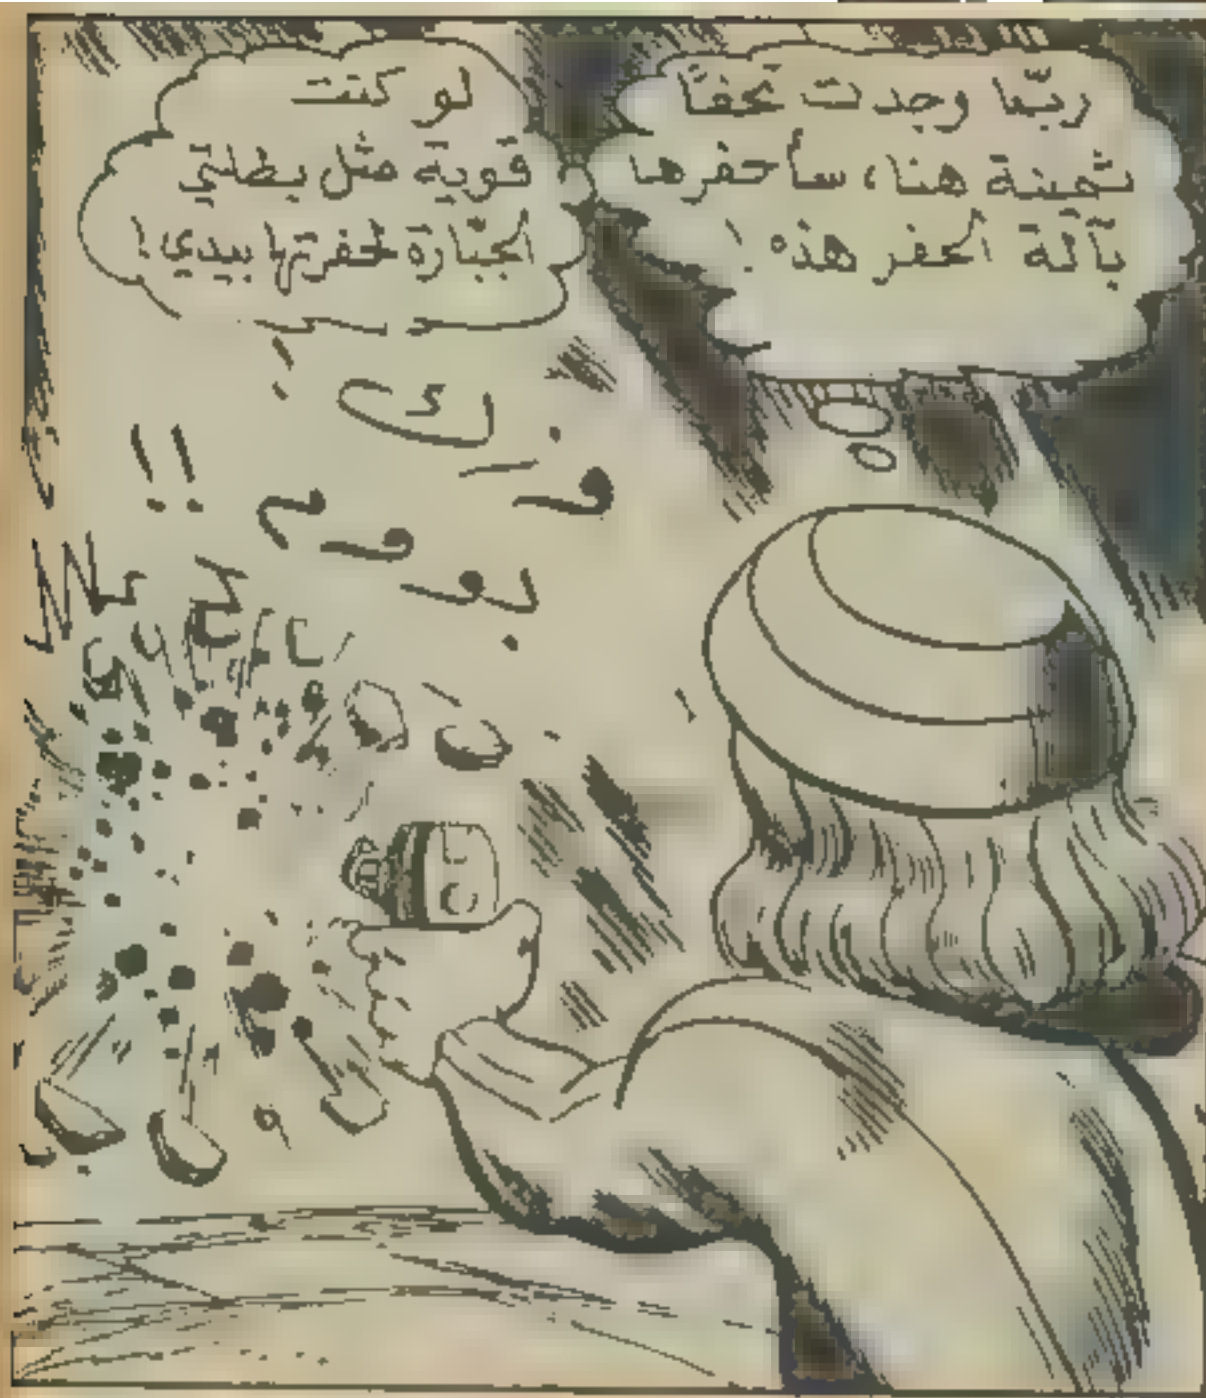 ربّما وجدت تحفًا
ثمينة هنا، سأحفرها
بآلة الحفر هذه !
لو كنت
قوية مثل بطلتي
الجبّارة لحفرتها بيدي !
بووم !!